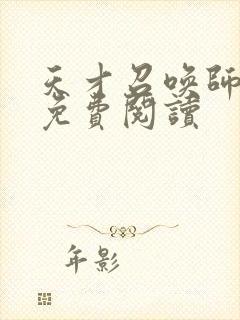 天才召唤師
免費閱讀
年影